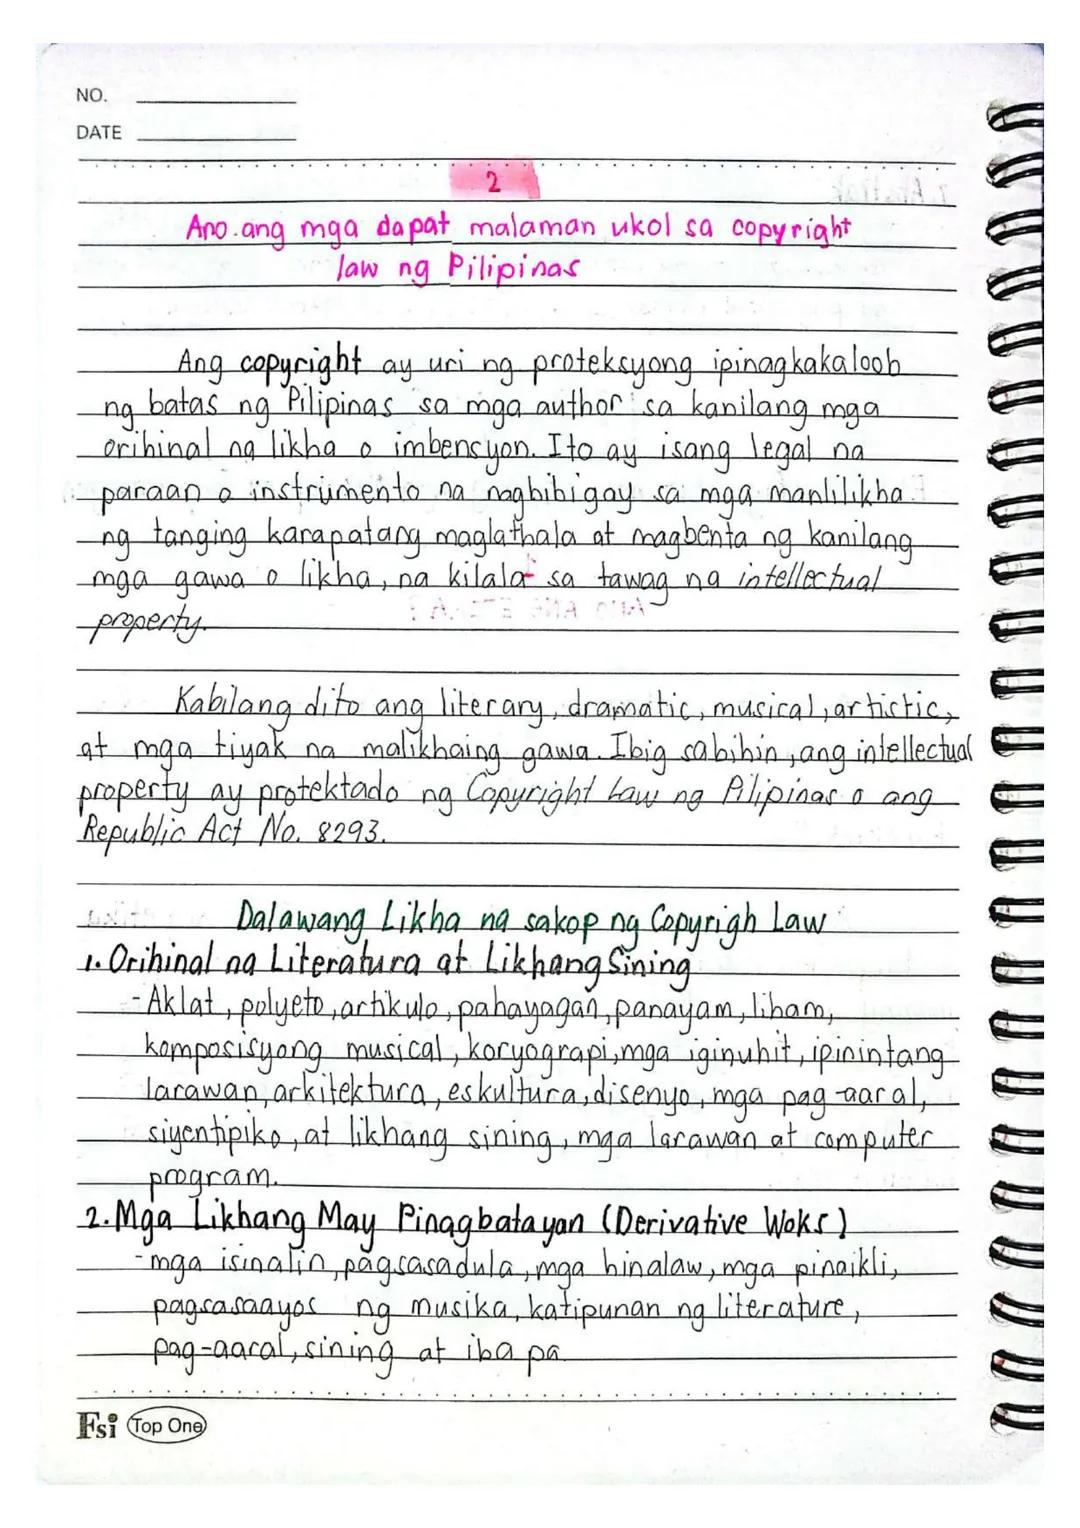 NO.
DATE
2
Ano ang mga dapat malaman ukol sa copyright
law ng Pilipinas
Ang copyright ay uri ng proteksyong ipinagkakaloob
ng batas ng Pilipinas sa mga author sa kanilang mga
orihinal na likha o imbensyon. Ito ay isang legal na
paraan o instrumento na nagbibigay sa mga manlilikha
ng tanging karapatang maglathala at magbenta ng kanilang
mga gawa o likha, na kilala sa tawag na intellectual
property.
Kabilang dito ang literary, dramatic, musical, artistic,
at mga tiyak na malikhaing gawa. Ibig sabihin, ang intellectual
property ay protektado ng Copyright Law ng Pilipinas o ang
Republic Act No. 8293.
Dalawang Likha na sakop ng Copyrigh Law
1. Orihinal na Literatura at Likhang Sining
- Aklat, polyeto, artikulo, pahayagan, panayam, liham,
komposisyong musical, koryograpi, mga iginuhit, ipinintang
larawan, arkitektura, eskultura, disenyo, mga pag-aaral,
siyentipiko, at likhang sining, mga larawan at computer
program.
2. Mga Likhang May Pinagbatayan (Derivative Woks)
- mga isinalin, pagsasadula, mga hinalaw, mga pinaikli,
pagsasaayos ng musika, katipunan ng literature,
pag-aaral, sining at iba pa
Fsi Top One